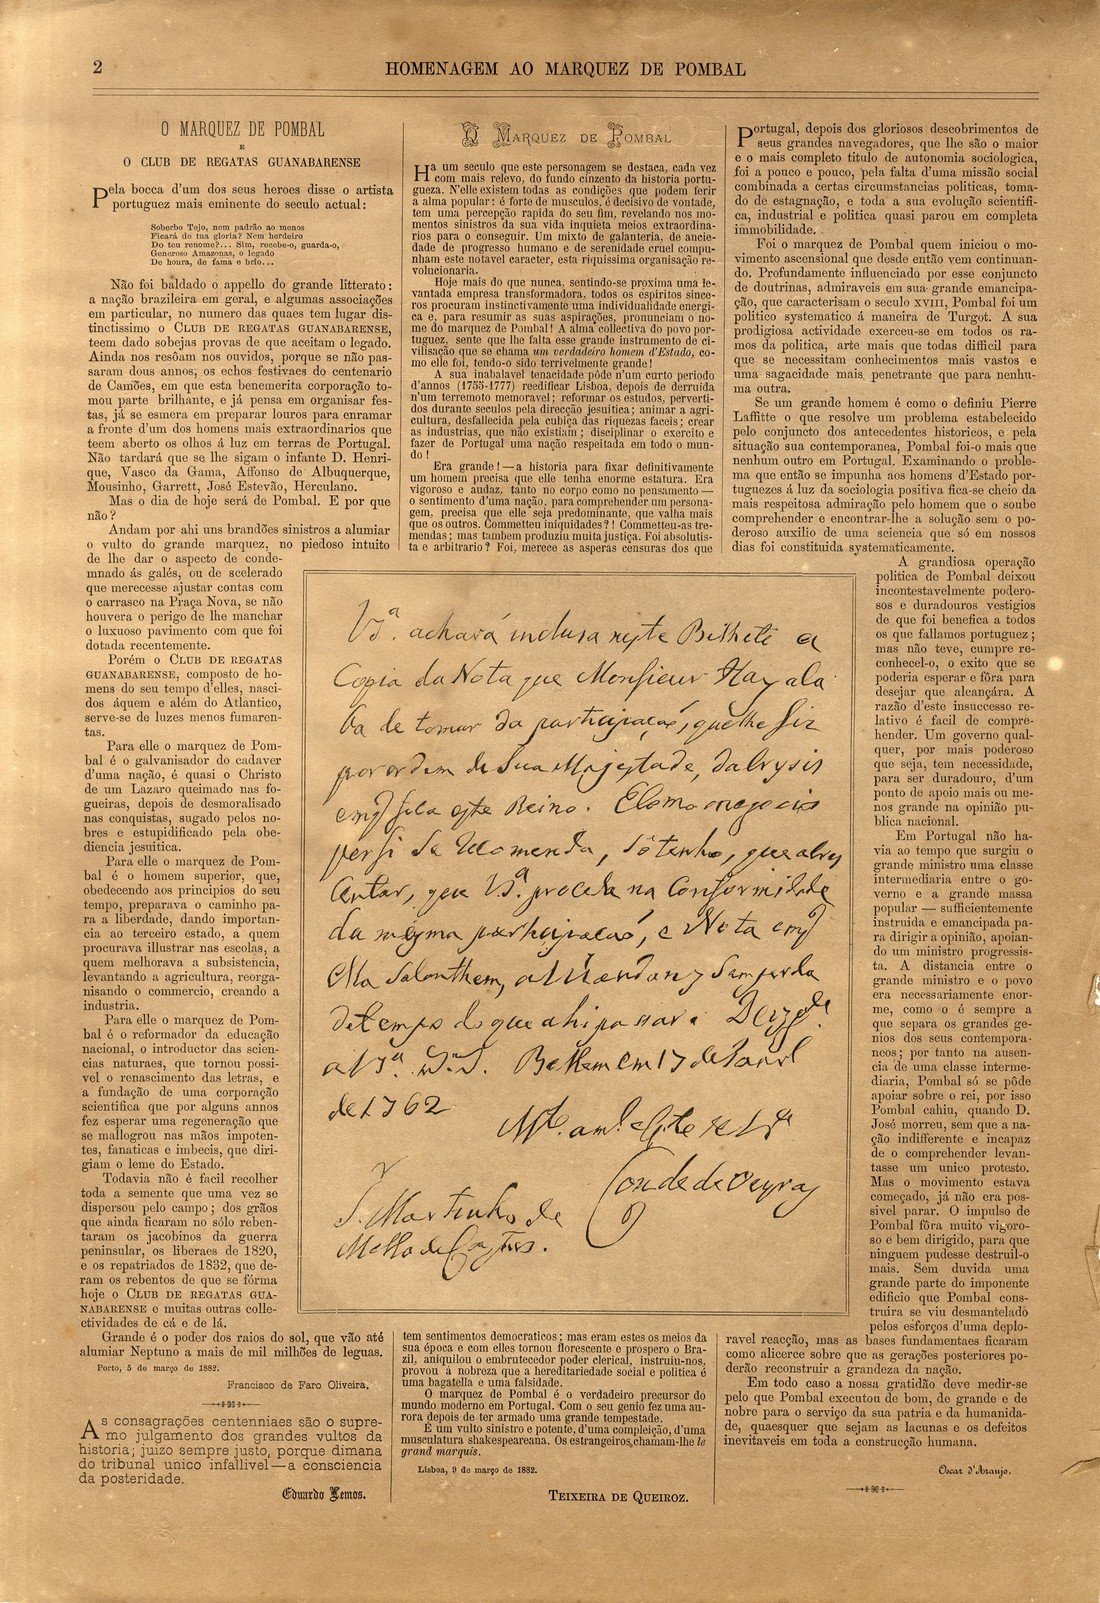 2
HOMENAGEM AO MARQUEZ DE POMBAL
O MARQUEZ DE POMBAL
E
O CLUB DE REGATAS GUANABARENSE
Pela bocca d'um dos seus heroes disse o artista
portuguez mais eminente do seculo actual:
Soberbo Tejo, nem padrão ao menos
Ficará de tua gloria? Nem herdeiro
Do teu renome?... Sim, recebe-o, guarda-o,
Generoso Amazonas, o legado
De honra, de fama e brio...
Não foi baldado o appello do grande litterato:
a nação brazileira em geral, e algumas associações
em particular, no numero das quaes tem lugar dis-
tinctissimo o CLUB DE REGATAS GUANABARENSE,
teem dado sobejas provas de que aceitam o legado.
Ainda nos resôam nos ouvidos, porque se não pas-
saram dous annos, os echos festivaes do centenario
de Camões, em que esta benemerita corporação to-
mou parte brilhante, e já pensa em organisar fes-
tas, já se esmera em preparar louros para enramar
a fronte d'um dos homens mais extraordinarios que
teem aberto os olhos á luz em terras de Portugal.
Não tardará que se lhe sigam o infante D. Henri-
que, Vasco da Gama, Affonso de Albuquerque,
Mousinho, Garrett, José Estevão, Herculano.
Mas o dia de hoje será de Pombal. E por que
não?
Andam por ahi uns brandões sinistros a alumiar
o vulto do grande marquez, no piedoso intuito
de lhe dar o aspecto de conde-
mnado ás galés, ou de scelerado
que merecesse ajustar contas com
o carrasco na Praça Nova, se não
houvera o perigo de lhe manchar
o luxuoso pavimento com que foi
dotada recentemente.
Porém o CLUB DE REGATAS
GUANABARENSE, composto de ho-
mens do seu tempo d'elles, nasci-
dos áquem e além do Atlantico,
serve-se de luzes menos fumaren-
tas.
Para elle o marquez de Pom-
bal é o galvanisador do cadaver
d'uma nação, é quasi o Christo
de um Lazaro queimado nas fo-
gueiras, depois de desmoralisado
nas conquistas, sugado pelos no-
bres e estupidificado pela obe-
diencia jesuitica.
Para elle o marquez de Pom-
bal é o homem superior, que,
obedecendo aos principios do seu
tempo, preparava o caminho pa-
ra a liberdade, dando importan-
cia ao terceiro estado, a quem
procurava illustrar nas escolas, a
quem melhorava a subsistencia,
levantando a agricultura, reorga-
nisando o commercio, creando a
industria.
Para elle o marquez de Pom-
bal é o reformador da educação
nacional, o introductor das scien-
cias naturaes, que tornou possi-
vel o renascimento das letras, e
a fundação de uma corporação
scientifica que por alguns annos
fez esperar uma regeneração que
se mallogrou nas mãos impoten-
tes, fanaticas e imbecis, que diri-
giam o leme do Estado.
Todavia não é facil recolher
toda a semente que uma vez se
dispersou pelo campo; dos grãos
que ainda ficaram no sólo reben-
taram os jacobinos da guerra
peninsular, os liberaes de 1820,
e os repatriados de 1832, que de-
ram os rebentos de que se fórma
hoje o CLUB DE REGATAS GUA-
NABARENSE e muitas outras colle-
ctividades de cá e de lá.
Grande é o poder dos raios do sol, que vão até
alumiar Neptuno a mais de mil milhões de leguas.
Porto, 5 de março de 1882.
Francisco de Faro Oliveira.
As consagrações centenniaes são o supre-
mo julgamento dos grandes vultos da
historia; juizo sempre justo, porque dimana
do tribunal unico infallivel—a consciencia
da posteridade.
Eduardo Lemos.
O MARQUEZ DE POMBAL
Ha um seculo que este personagem se destaca, cada vez
com mais relevo, do fundo cinzento da historia portu-
gueza. N'elle existem todas as condições que podem ferir
a alma popular: é forte de musculos, é decisivo de vontade,
tem uma percepção rapida do seu fim, revelando nos mo-
mentos sinistros da sua vida inquieta meios extraordina-
rios para o conseguir. Um mixto de galanteria, de ancie-
dade de progresso humano e de serenidade cruel compu-
nham este notavel caracter, esta riquissima organisação re-
volucionaria.
Hoje mais do que nunca, sentindo-se proxima uma le-
vantada empresa transformadora, todos os espiritos since-
ros procuram instinctivamente uma individualidade energi-
ca e, para resumir as suas aspirações, pronunciam o no-
me do marquez de Pombal! A alma collectiva do povo por-
tuguez, sente que lhe falta esse grande instrumento de ci-
vilisação que se chama um verdadeiro homem d'Estado, co-
mo elle foi, tendo-o sido terrivelmente grande!
A sua inabalavel tenacidade pôde n'um curto periodo
d'annos (1755-1777) reedificar Lisboa, depois de derruida
n'um terremoto memoravel; reformar os estudos, perverti-
dos durante seculos pela direcção jesuitica; animar a agri-
cultura, desfallecida pela cubiça das riquezas faceis; crear
as industrias, que não existiam; disciplinar o exercito e
fazer de Portugal uma nação respeitada em todo o mun-
do!
Era grande!—a historia para fixar definitivamente
um homem precisa que elle tenha enorme estatura. Era
vigoroso e audaz, tanto no corpo como no pensamento—
o sentimento d'uma nação, para comprehender um persona-
gem, precisa que elle seja predominante, que valha mais
que os outros. Commetteu iniquidades?! Commetteu-as tre-
mendas; mas tambem produziu muita justiça. Foi absolutis-
ta e arbitrario? Foi, merece as asperas censuras dos que
Vª. achará inclusa neste Bilhete a
Copia da Nota que Monsieur Hay ala
ba de tomar da participação, que lhe fiz
por ordem de Sua Magestade,
este Reino.
que Vª. proceda na Conformidade
da mesma participação, e Nota
do que ahi passará
Bellem em 17 de
de 1762
Conde de Oeyras
S. Martinho de
Mello de Castro.
tem sentimentos democraticos; mas eram estes os meios da
sua época e com elles tornou florescente e prospero o Bra-
zil, aniquilou o embrutecedor poder clerical, instruiu-nos,
provou á nobreza que a hereditariedade social e politica é
uma bagatella e uma falsidade.
O marquez de Pombal é o verdadeiro precursor do
mundo moderno em Portugal. Com o seu genio fez uma au-
rora depois de ter armado uma grande tempestade.
É um vulto sinistro e potente, d'uma compleição, d'uma
musculatura shakespeareana. Os estrangeiros chamam-lhe le
grand marquis.
Lisboa, 9 de março de 1882.
TEIXEIRA DE QUEIROZ.
Portugal, depois dos gloriosos descobrimentos de
seus grandes navegadores, que lhe são o maior
e o mais completo titulo de autonomia sociologica,
foi a pouco e pouco, pela falta d'uma missão social
combinada a certas circumstancias politicas, toma-
do de estagnação, e toda a sua evolução scientifi-
ca, industrial e politica quasi parou em completa
immobilidade.
Foi o marquez de Pombal quem iniciou o mo-
vimento ascensional que desde então vem continuan-
do. Profundamente influenciado por esse conjuncto
de doutrinas, admiraveis em sua grande emancipa-
ção, que caracterisam o seculo XVIII, Pombal foi um
politico systematico á maneira de Turgot. A sua
prodigiosa actividade exerceu-se em todos os ra-
mos da politica, arte mais que todas difficil para
que se necessitam conhecimentos mais vastos e
uma sagacidade mais penetrante que para nenhu-
ma outra.
Se um grande homem é como o definiu Pierre
Laffitte o que resolve um problema estabelecido
pelo conjuncto dos antecedentes historicos, e pela
situação sua contemporanea, Pombal foi-o mais que
nenhum outro em Portugal. Examinando o proble-
ma que então se impunha aos homens d'Estado por-
tuguezes á luz da sociologia positiva fica-se cheio da
mais respeitosa admiração pelo homem que o soube
comprehender e encontrar-lhe a solução sem o po-
deroso auxilio de uma sciencia que só em nossos
dias foi constituida systematicamente.
A grandiosa operação
politica de Pombal deixou
incontestavelmente podero-
sos e duradouros vestigios
de que foi benefica a todos
os que fallamos portuguez;
mas não teve, cumpre re-
conhecel-o, o exito que se
poderia esperar e fôra para
desejar que alcançára. A
razão d'este insuccesso re-
lativo é facil de compre-
hender. Um governo qual-
quer, por mais poderoso
que seja, tem necessidade,
para ser duradouro, d'um
ponto de apoio mais ou me-
nos grande na opinião pu-
blica nacional.
Em Portugal não ha-
via ao tempo que surgiu o
grande ministro uma classe
intermediaria entre o go-
verno e a grande massa
popular — sufficientemente
instruida e emancipada pa-
ra dirigir a opinião, apoian-
do um ministro progressis-
ta. A distancia entre o
grande ministro e o povo
era necessariamente enor-
me, como o é sempre a
que separa os grandes ge-
nios dos seus contempora-
neos; por tanto na ausen-
cia de uma classe interme-
diaria, Pombal só se pôde
apoiar sobre o rei, por isso
Pombal cahiu, quando D.
José morreu, sem que a na-
ção indifferente e incapaz
de o comprehender levan-
tasse um unico protesto.
Mas o movimento estava
começado, já não era pos-
sivel parar. O impulso de
Pombal fôra muito vigoro-
so e bem dirigido, para que
ninguem pudesse destruil-o
mais. Sem duvida uma
grande parte do imponente
edificio que Pombal cons-
truira se viu desmantelado
pelos esforços d'uma deplo-
ravel reacção, mas as bases fundamentaes ficaram
como alicerce sobre que as gerações posteriores po-
derão reconstruir a grandeza da nação.
Em todo caso a nossa gratidão deve medir-se
pelo que Pombal executou de bom, de grande e de
nobre para o serviço da sua patria e da humanida-
de, quaesquer que sejam as lacunas e os defeitos
inevitaveis em toda a construcção humana.
Oscar d'Araujo.